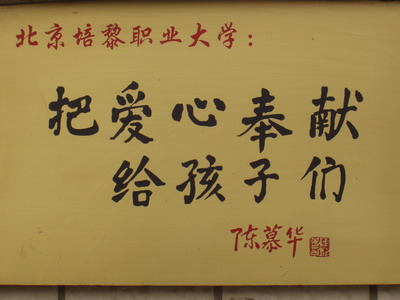 北京培黎职业大学:
把爱心奉献
给孩子们
陈慕华